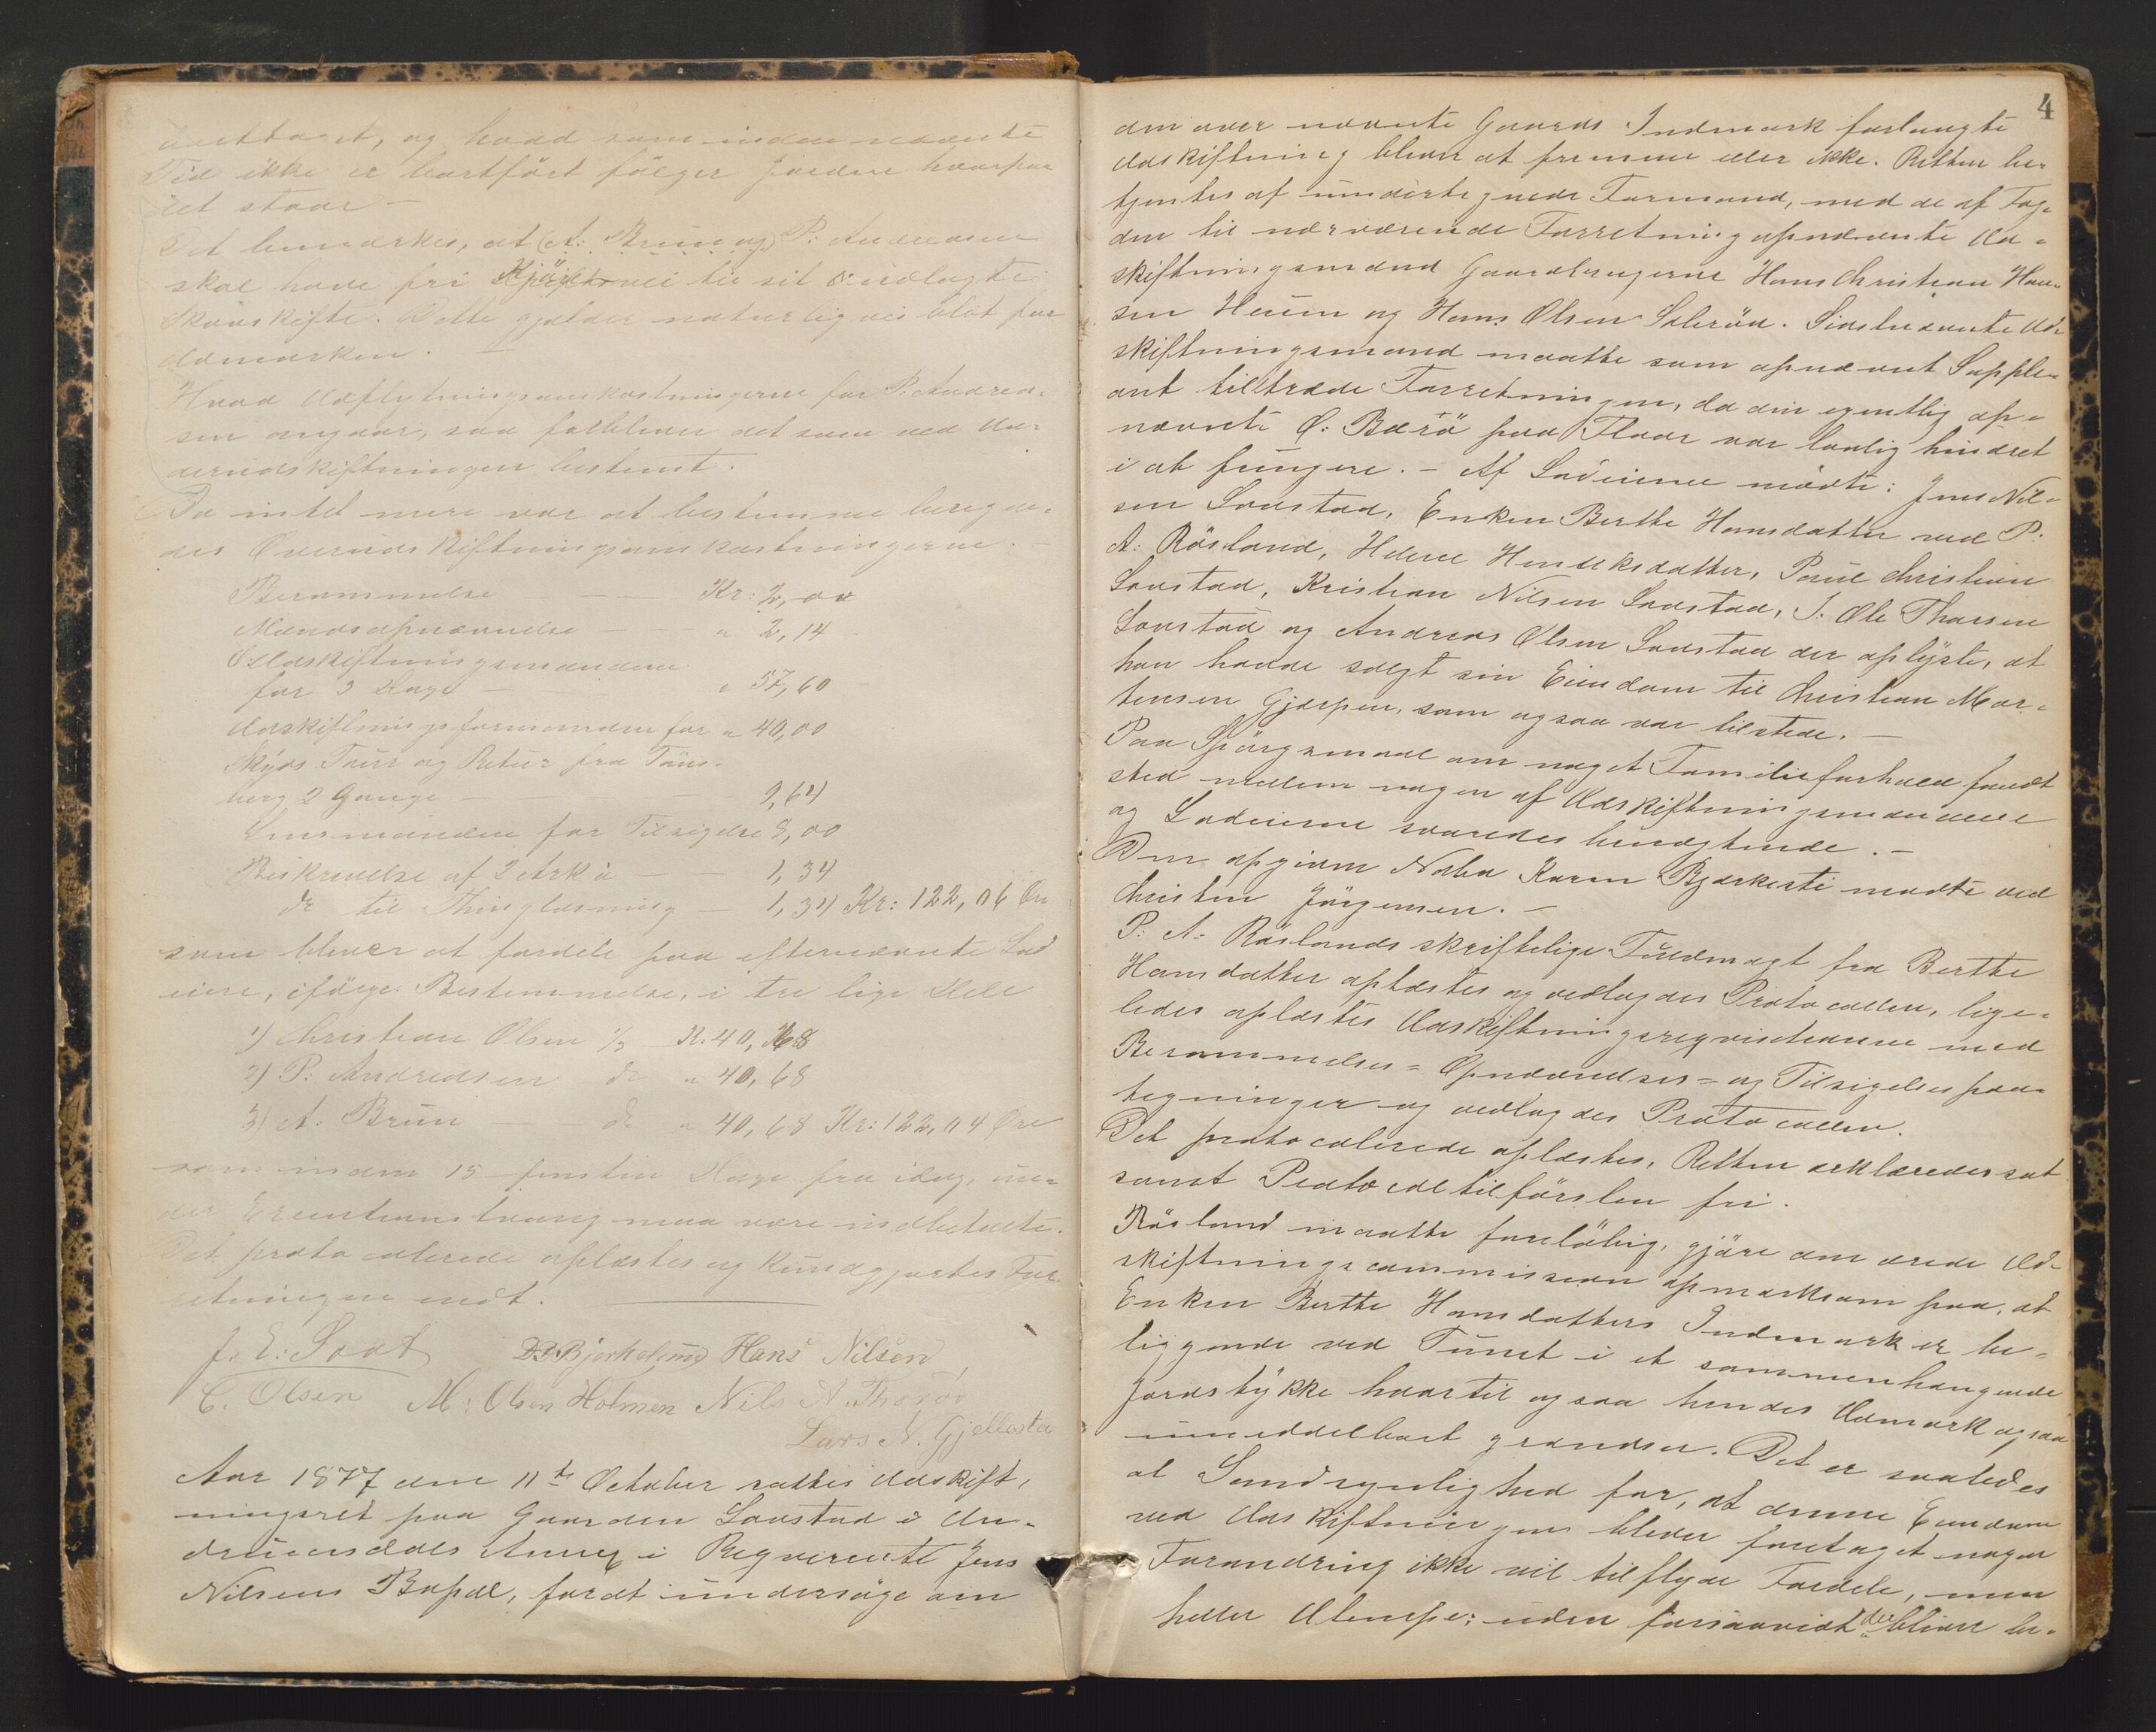 borttaget, og hvad som inden nævnte
Tid ikke er bortført følger Jorden hvorpaa
det staar —
Det bemærkes, at (A: Brun og) P: Andreasen
skal have fri Kjørevei til sit udlagte
Skovskifte. Dette gjælder naturligvis blot for
Udmarken. —
Hvad Udflytningsomkostningerne for P: Andrea-
sen angaar, saa forbliver det som ved Un-
derudskiftningen bestemt.
Da intet mere var at bestemme beregne-
des Overudskiftningsomkostningerne. —
Berammelse — — — Kr: 2,00
Mændsopnævnelse — — " 2,14
Udskiftningsmændene
for 3 Dage — — " 57,60
Udskiftningsformanden for " 40,00
Skyds Tour og Retur fra Töns-
berg 2 Gange — — 9,64
Lensmanden for Tilsigelse 8,00
Beskrivelse af 2 Ark á — — 1,34
do til Thinglæsning — 1,34 Kr: 122,06 Øre
som bliver at fordele paa efternævnte Lod-
eiere, ifølge Bestemmelse, i tre lige Dele
1) Christian Olsen 1/3 Kr. 40,68
2) P: Andreasen do " 40,68
3) A: Brun — do " 40,68 Kr: 122,04 Øre
som inden 15 femten Dage fra idag, un-
der Executionstvang maa være indbetalte.
Det protocollerede oplæstes og kundgjordes For-
retningen endt. —
J. E: Soot D B Bjerkelund Hans Nilsen
C. Olsen M: Olsen Holmen Nils A. Thorsø
Lars N. Gjellestad
Aar 1877 den 11te October sattes Udskift-
ningsret paa Gaarden Lovstad i An-
Annex i Reqvirente Jens
Nilsens Bopæl, for at undersøge om
4
den over nævnte Gaards Indmark forlangte
Udskiftning bliver at fremme eller ikke. Retten be-
tjentes af undertegnede Formand, med de af Fog-
den til nærværende Forretning opnævnte Ud-
skiftningsmænd Gaardbrugerne Hans Christian Han-
sen Heum og Hans Olsen Solerød. Sidstnævnte Ud-
skiftningsmand maatte som opnævnt Supple-
ant tiltræde Forretningen, da den egentlig op-
nævnte O: Bærø paa Flaar var lovlig hindret
i at fungere. — Af Lodeierne mødte: Jens Nil-
sen Lovstad, Enken Berthe Hansdatter ved P:
A: Røsland, Helene Hendeksdatter, Paul Christian
Lovstad, Kristian Nilsen Lovstad, J: Ole Thorsen
Lovstad og Andreas Olsen Lovstad der oplyste, at
han havde solgt sin Eiendom til Christian Mor-
tensen Gjerpen, som ogsaa var tilstede. —
Paa Spörgsmaal om noget Familieforhold fandt
sted mellem nogen af Udskiftningsmændene
og Lodeierne svaredes benægtende. —
Den opgivne Nabo Karen Bjerkesti mødte ved
Christen Jörgensen. —
P: A: Røslands skriftelige Fuldmagt fra Berthe
Hansdatter oplæstes og vedlagdes Protocollen, lige-
ledes oplæstes Udskiftningsreqvisitionen med
Berammelses- Opnævnelses- og Tilsigelsespaa-
tegninger og vedlagdes Protocollen.
Det protocollerede oplæstes, Retten erklæredes sat
samt Protocoltilförslen fri.
Røsland maatte foreløbig, gjöre den ærede Ud-
skiftningscommission opmærksom paa, at
Enken Berthe Hansdatters Indmark er be-
liggende ved Tunet i et sammenhængende
Jordstykke hvortil ogsaa hendes Udmark ogsaa
umiddelbart grændser. Det er saaledes
al Sandsynlighed for, at denne Eiendom
ved Udskiftningen bliver foretaget nogen
Forandring ikke vil tilflyde Fordele, men
heller Ulempe; uden forsaavidt der bliver be-